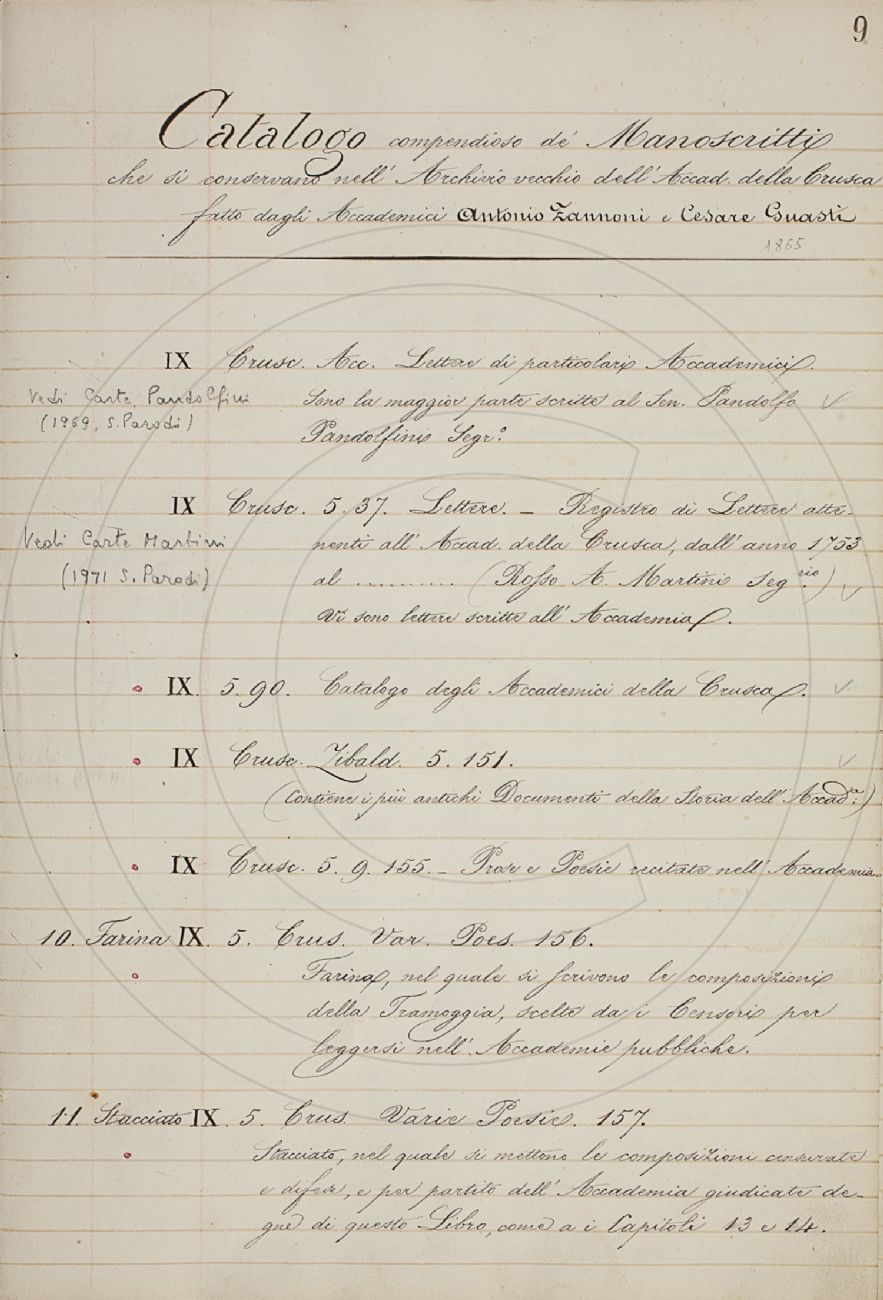 9
Catalogo compendioso de' Manoscritti
che si conservano nell' Archivio vecchio dell' Accad. della Crusca
fatto dagli Accademici Antonio Zannoni e Cesare Guasti
1865
IX Crusc. Acc. Lettere di particolari Accademici.
Vedi Carte Pandolfini Sono la maggior parte scritte al Sen. Pandolfo
(1969, S. Parodi) Pandolfini Segr.º
IX Crusc. 5. 37. Lettere. – Registro di Lettere atte-
Vedi Carte Martini nenti all' Accad. della Crusca, dall' anno 1753
(1971 S. Parodi) al .......... (Rosso A. Martini Seg.rio)
Vi sono lettere scritte all' Accademia.
IX. 5. 90. Catalogo degli Accademici della Crusca.
IX Crusc. Zibald. 5. 151.
(Contiene i più antichi Documenti della Storia dell' Accad.a)
IX Crusc. 5. 9. 155. – Prose e Poesie recitate nell' Accademia.
10. Farina IX. 5. Crus. Var. Poes. 156.
Farina, nel quale si scrivono le composizioni
della Tramoggia, scelte da i Censori per
leggersi nell' Accademie pubbliche.
11. Stacciato IX. 5. Crus. Varie Poesie. 157.
Stacciato, nel quale si mettono le composizioni censurate
e difese, e per partito dell' Accademia giudicate de-
gne di questo Libro, come a i Capitoli 13 e 14.